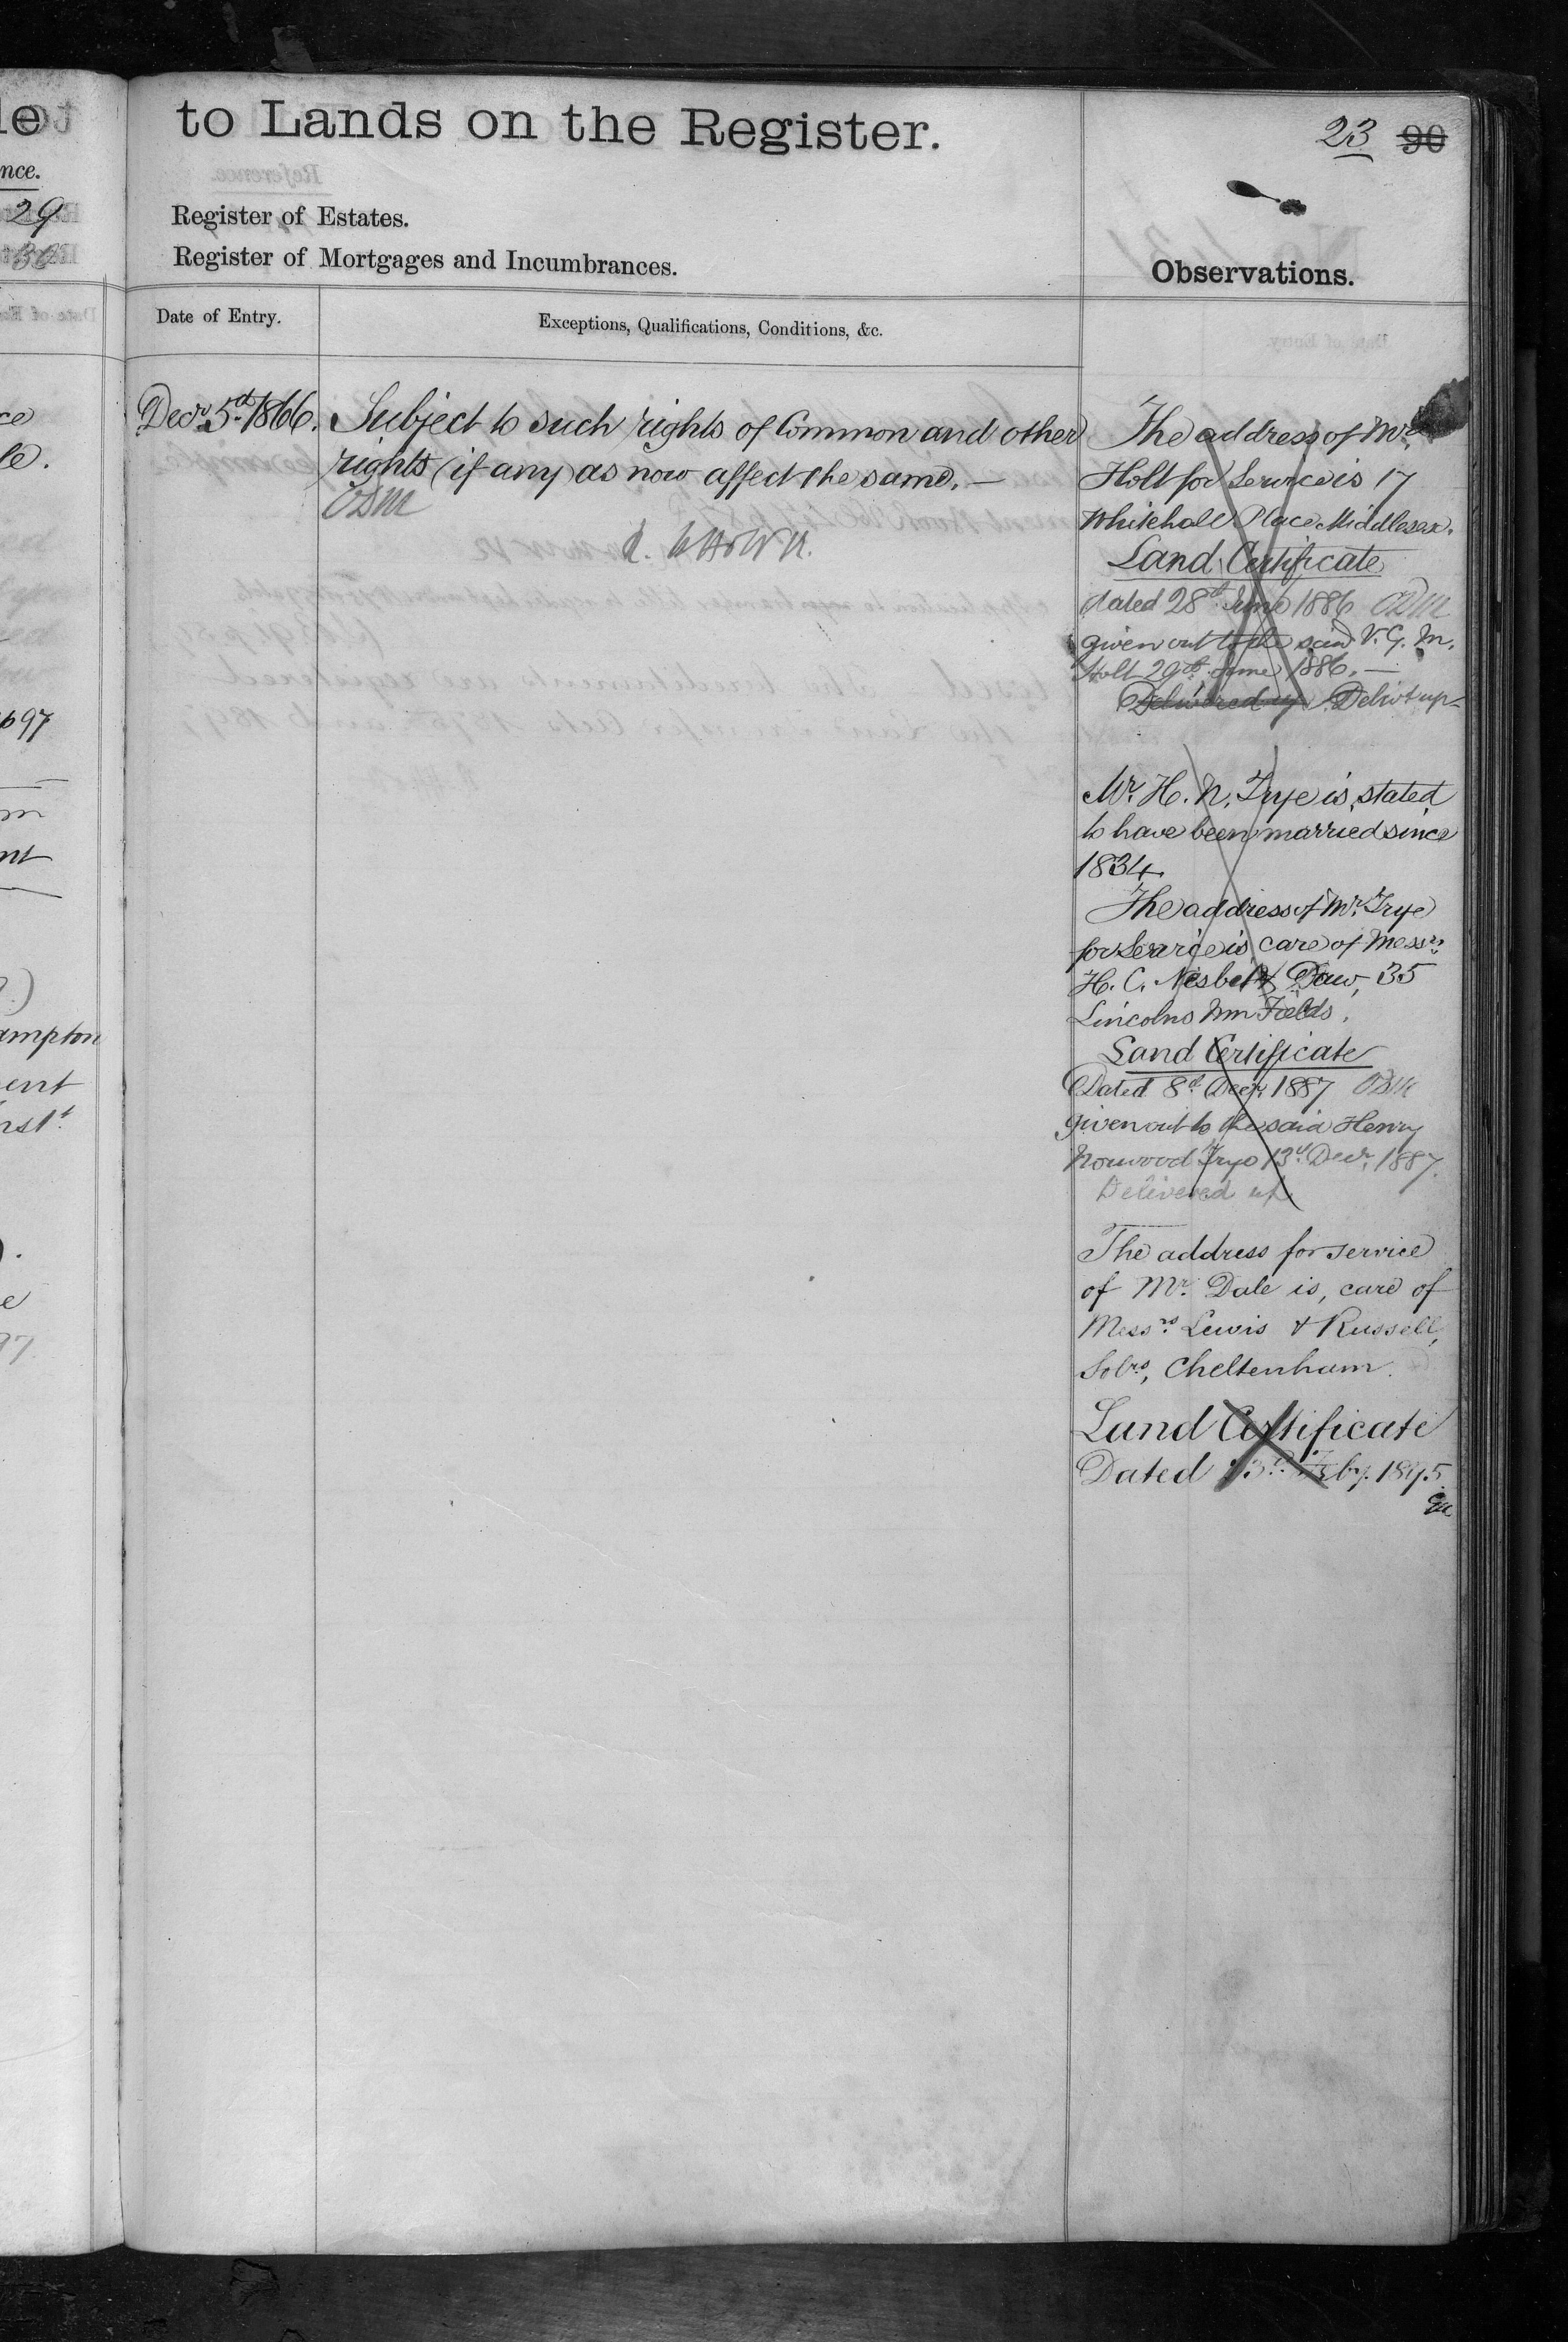 to Lands on the Register.
23 90
Register of Estates.
Register of Mortgages and Incumbrances.
Observations.
Date of Entry.
Exceptions, Qualifications, Conditions, &c.
Decr. 5th 1866.
Subject to such rights of Common and other
rights (if any) as now affect the same. —
The address of Mr.
Holt for Service is 17
Whitehall Place Middlesex.
Land Certificate
dated 28th June 1886
given out to the said V. G. M.
Holt 29th June 1886. —
Delivered up Delivd up
Mr. H. N. Trye is stated
to have been married since
1834.
The address of Mr. Trye
for Service is care of Messrs
H. C. Nisbet & Daw, 35
Lincolns Inn Fields.
Land Certificate
Dated 8th Decr. 1887
given out to the said Henry
Norwood Trye 13th Decr. 1887.
Delivered up
The address for service
of Mr. Dale is, care of
Messrs. Lewis & Russell,
Solrs, Cheltenham.
Land Certificate
Dated Feby. 1895
nce.
29
30
ce
le.
97
m
nt
ampton
ent
rst.
e
97.